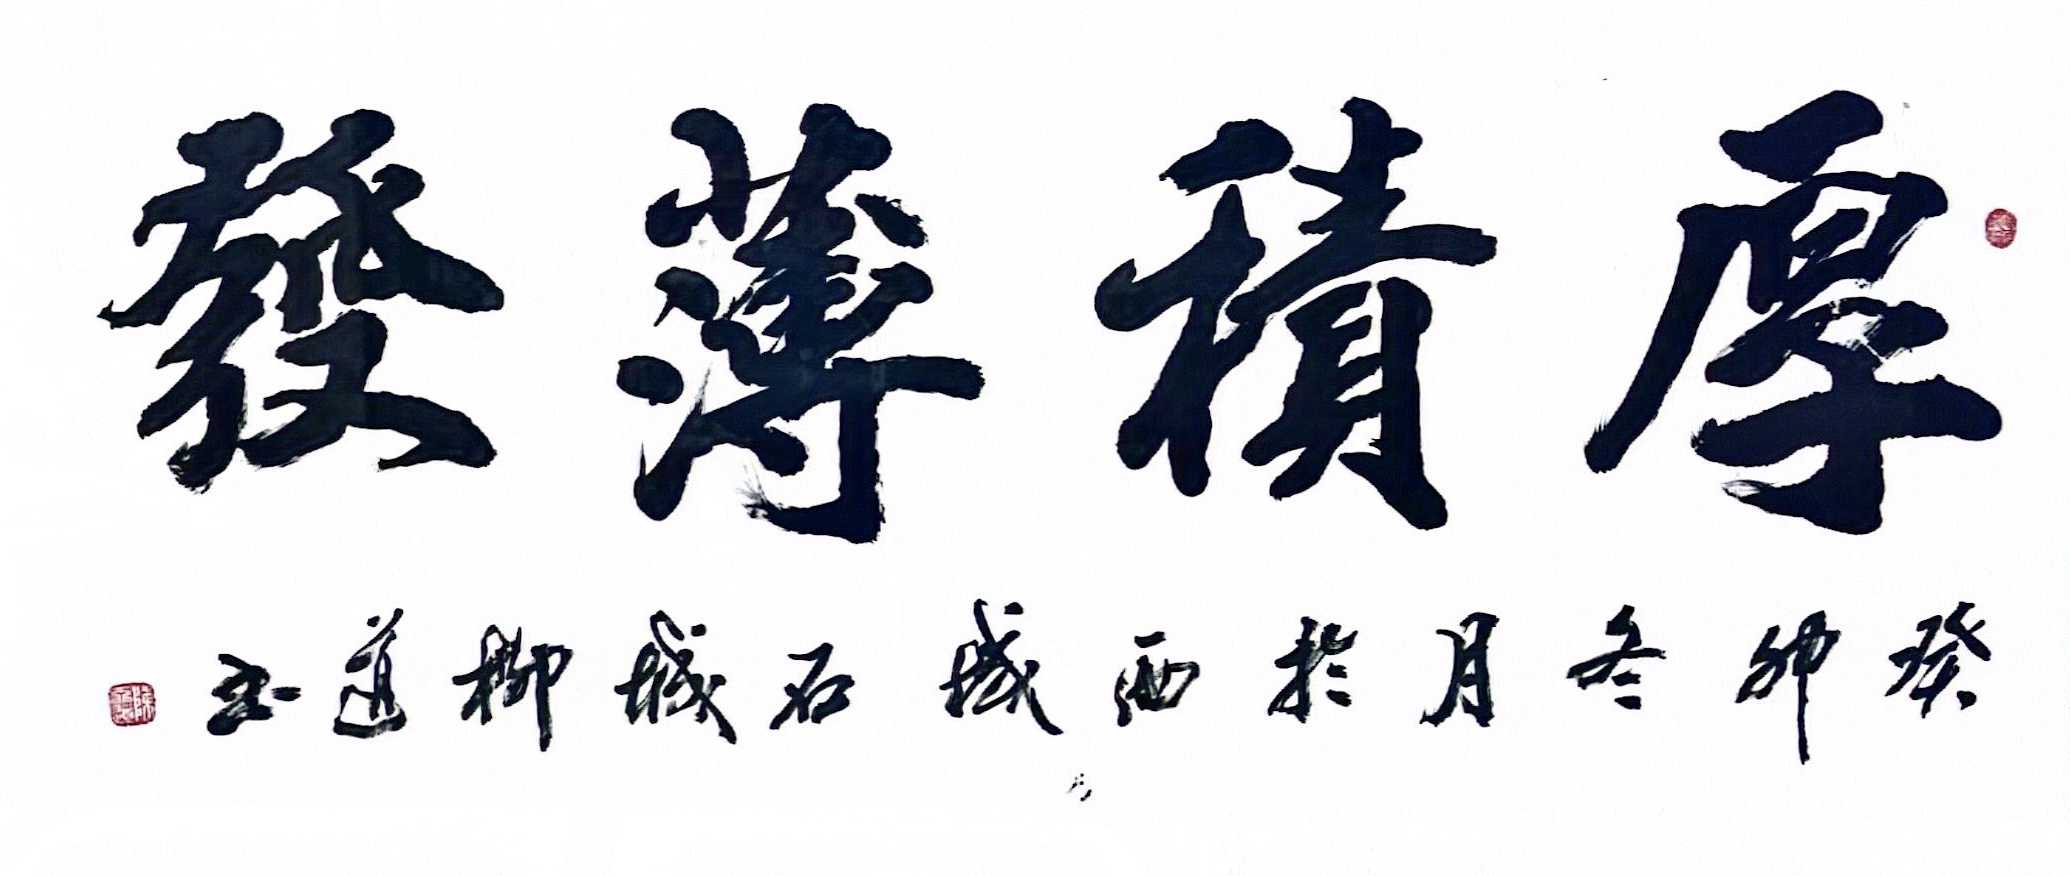 厚積薄發
癸卯冬月於西城石城柳道書